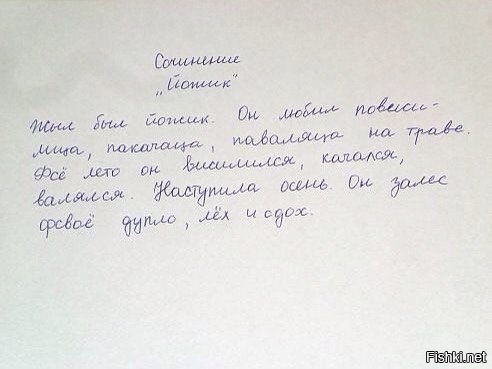 Сочинение
„Йожик"
Жыл был йожик. Он любил повеси-
мица, пакачаца, паваляца на траве.
Фсё лето он висилился, качался,
валялся. Наступила осень. Он залес
фсваё дупло, лёх и сдох.
Fishki.net